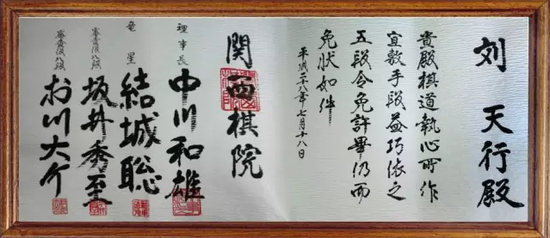 刘 天行殿
貴殿棋道執心所作
宜敷手段益巧依之
五段令免許畢仍而
免状如件
平成二八年七月十八日
関西棋院
理事長
中川和雄
竜星
結城聡
審査役八段
坂井秀至
審査役八段
村川大介